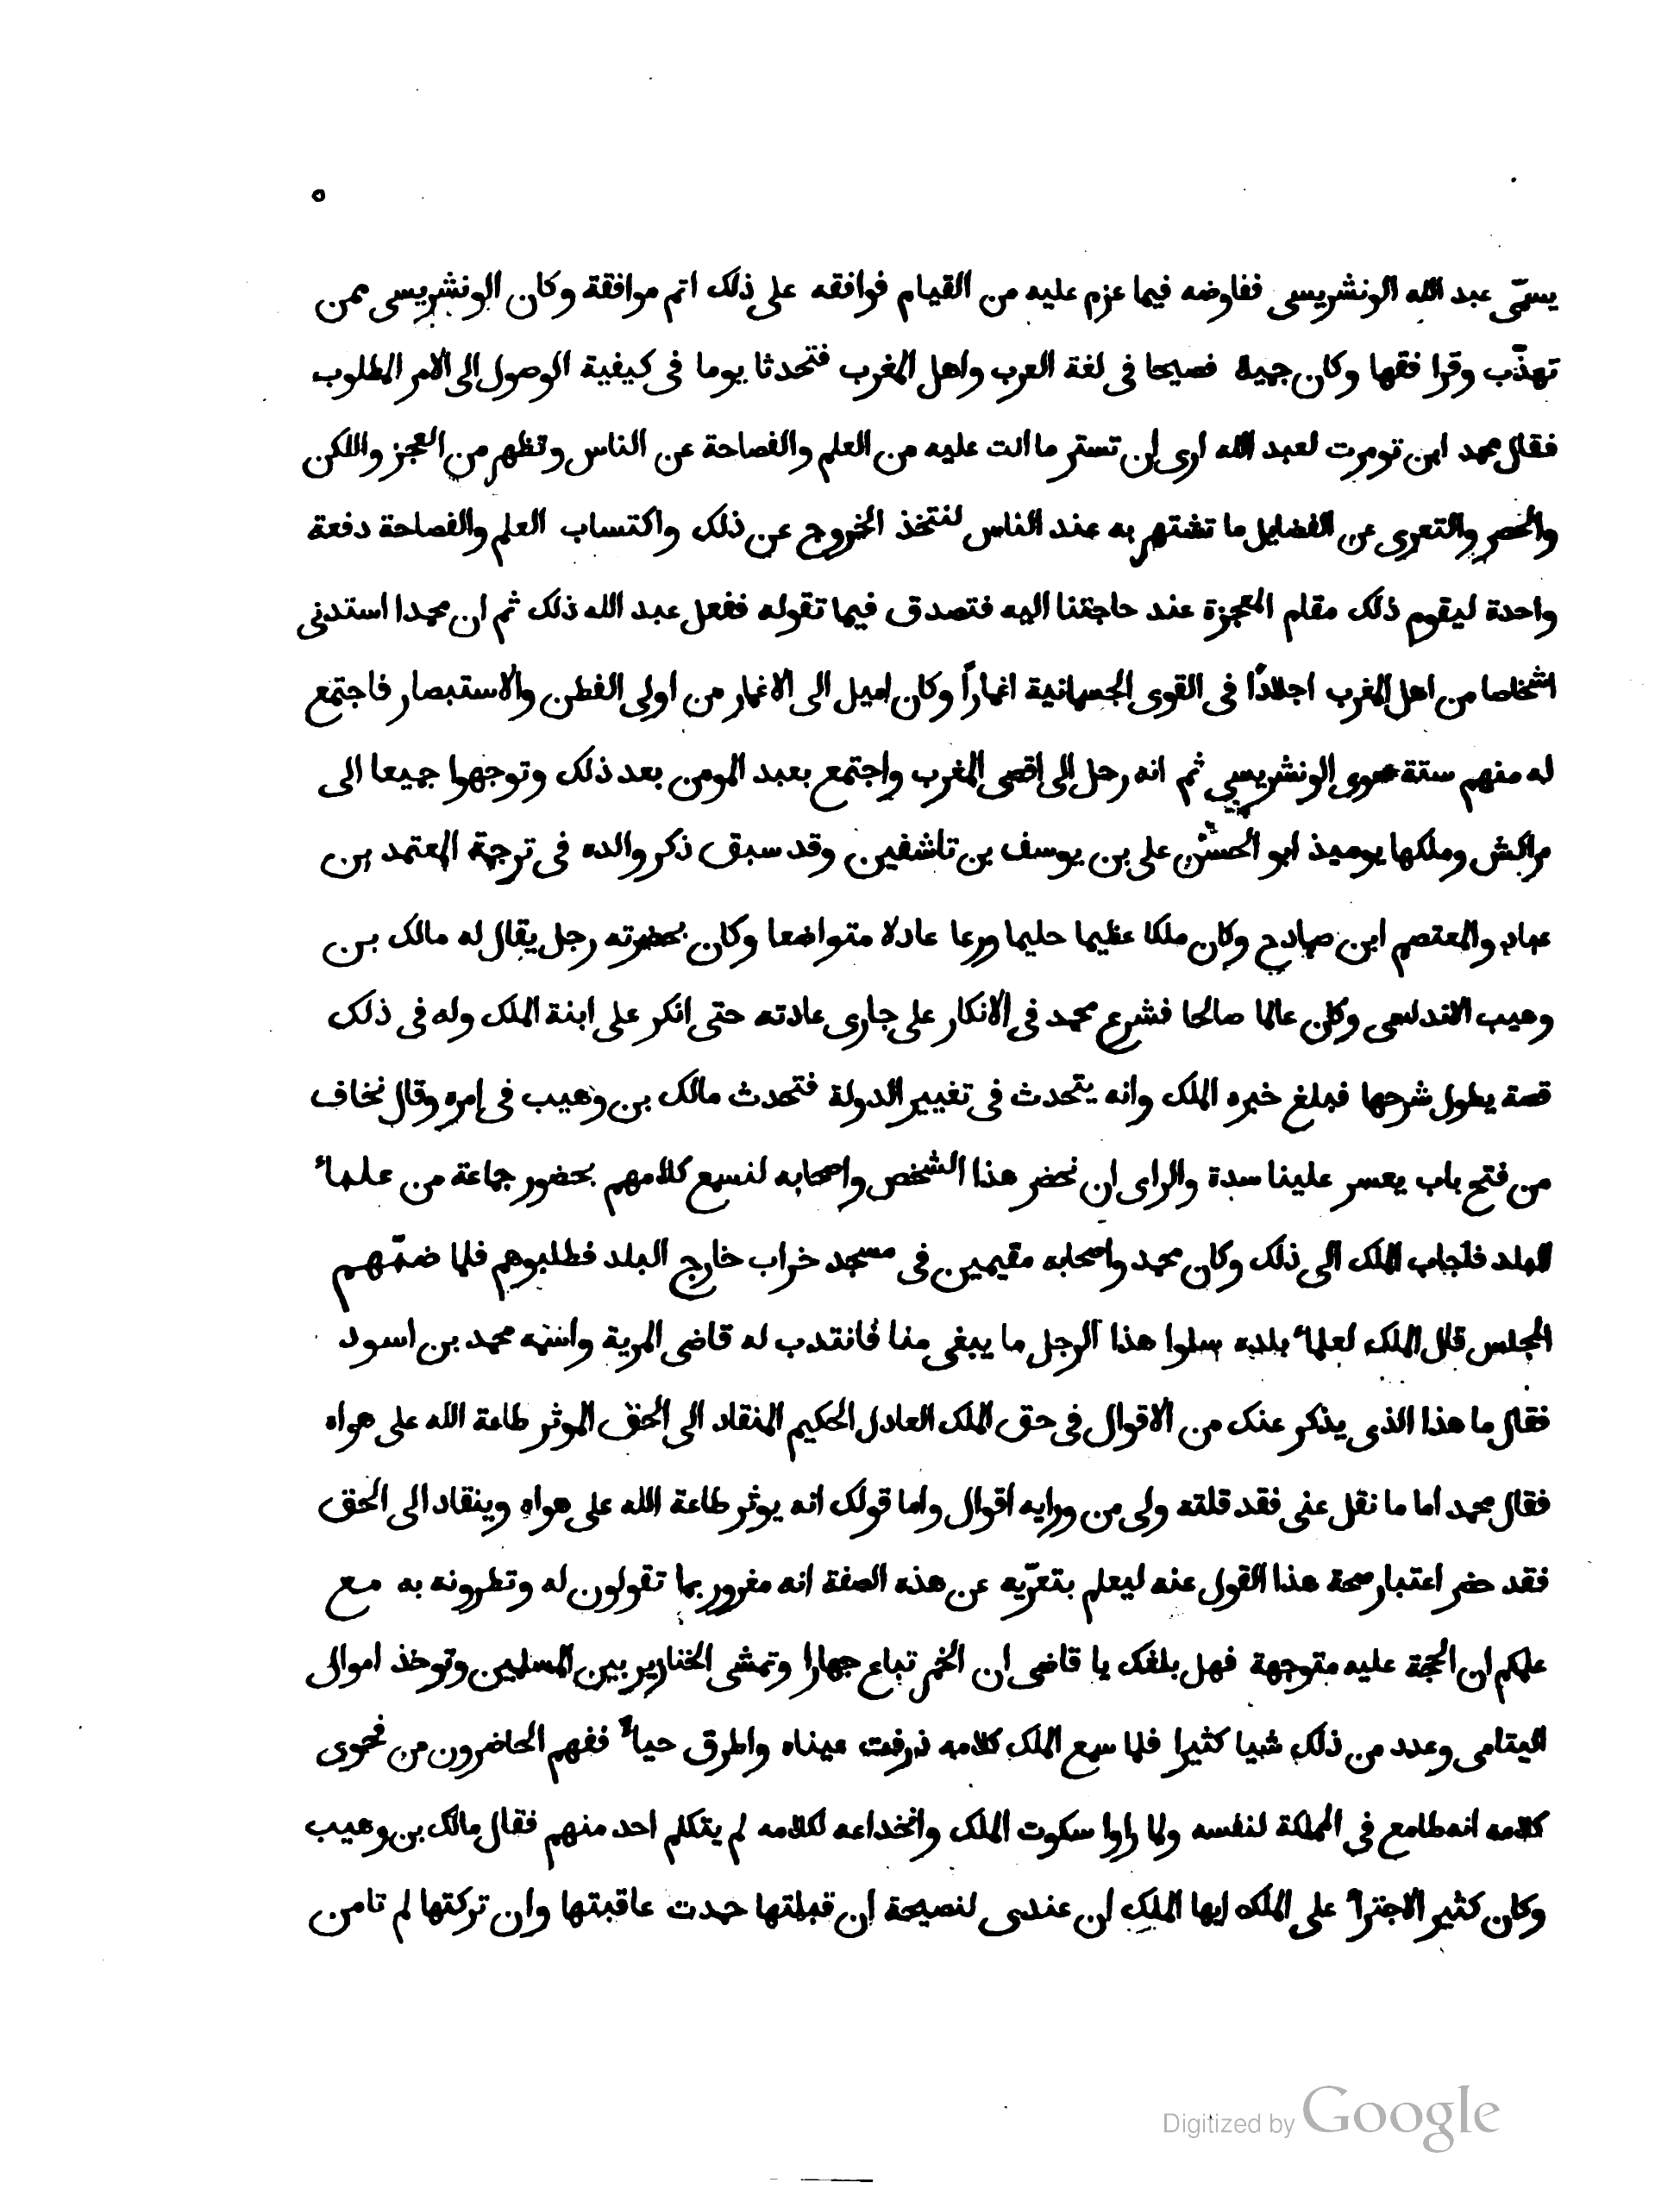 ٥
يسمّى عبد الله الونشريسى ففاوضه فيما عزم عليه من القيام فوافقه على ذلك اتم موافقة وكان الونشريسى ممن
تهذّب وقرا فقها وكان جميلا فصيحا فى لغة العرب واهل المغرب فتحدثا يوما فى كيفية الوصول الى الامر المطلوب
فقال محمد ابن تومرت لعبد الله ارى ان تستر ما انت عليه من العلم والفصاحة عن الناس وتظهر من العجز واللكن
والحصر والتعرى عن الفضايل ما تشتهر به عند الناس لنتخذ الخروج عن ذلك واكتساب العلم والفصاحة دفعة
واحدة ليقوم ذلك مقام المعجزة عند حاجتنا اليه فتصدق فيما تقوله ففعل عبد الله ذلك ثم ان محمدا استدنى
اشخاصا من اهل المغرب اجلادًا فى القوى الجسمانية اغمارًا وكان اميل الى الاغمار من اولى الفطن والاستبصار فاجتمع
له منهم ستة سوى الونشريسى ثم انه رحل الى اقصى المغرب واجتمع بعبد المومن بعد ذلك وتوجهوا جميعا الى
مراكش وملكها يوميذ ابو الحسن على بن يوسف بن تاشفين وقد سبق ذكر والده فى ترجمة المعتمد بن
عباد والمعتصم ابن صمادح وكان ملكا عظيما حليما ورعا عادلا متواضعا وكان بحضرته رجل يقال له مالك بن
وهيب الاندلسى وكان عالما صالحا فشرع محمد فى الانكار على جارى عادته حتى انكر على ابنة الملك وله فى ذلك
قصة يطول شرحها فبلغ خبره الملك وانه يتحدث فى تغيير الدولة فتحدث مالك بن وهيب فى امره وقال نخاف
من فتح باب يعسر علينا سدة والراى ان نحضر هذا الشخص واصحابه لنسمع كلامهم بحضور جماعة من علماء
البلد فاجاب الملك الى ذلك وكان محمد واصحابه مقيمين فى مسجد خراب خارج البلد فطلبوهم فلما ضمّهم
المجلس قال الملك لعلماء بلده سلوا هذا الرجل ما يبغى منا فانتدب له قاضى المرية واسمه محمد بن اسود
فقال ما هذا الذى يذكر عنك من الاقوال فى حق الملك العادل الحكيم المنقاد الى الحق الموثر طاعة الله على هواه
فقال محمد اما ما نقل عنى فقد قلته ولى من ورايه اقوال واما قولك انه يوثر طاعة الله على هواه وينقاد الى الحق
فقد حضر اعتبار صحة هذا القول عنه ليعلم بتعرّيه عن هذه الصفة انه مغرور بما تقولون له وتطرونه به مع
علمكم ان الحجة عليه متوجهة فهل بلغك يا قاضى ان الخمر تباع جهارا وتمشى الخنازير بين المسلمين وتوخذ اموال
اليتامى وعدد من ذلك شيا كثيرا فلما سمع الملك كلامه ذرفت عيناه واطرق حياءً ففهم الحاضرون من فحوى
كلامه انه طامع فى المملكة لنفسه ولما راوا سكوت الملك وانخداعه لكلامه لم يتكلم احد منهم فقال مالك بن وهيب
وكان كثير الاجتراء على الملك ايها الملك ان عندى لنصيحة ان قبلتها حمدت عاقبتها وان تركتها لم تامن
Digitized by Google